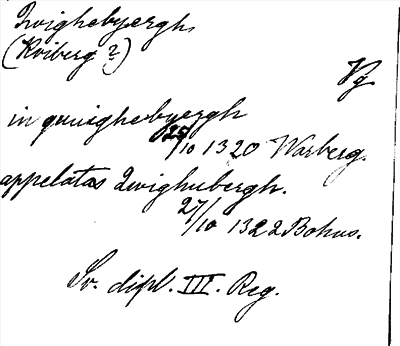 Qvighebyergh
(Kviberg ?)
Vg
in quuighebyergh
25/10 1320 Warberg.
appelatas Qwighubergh.
27/10 1322 Bohus.
Sv. dipl. III. Reg.